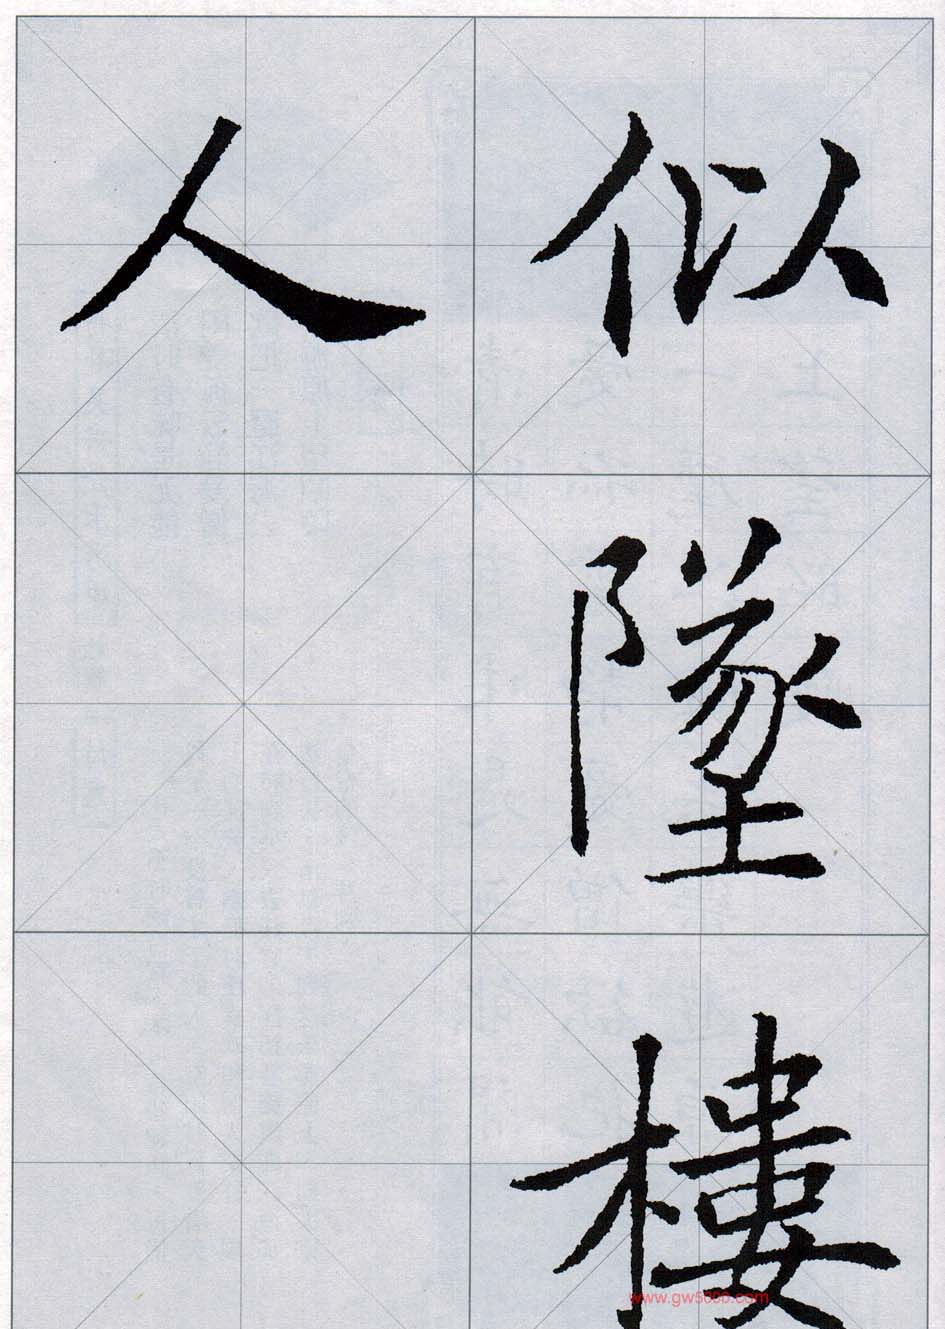 似墜樓
人
www.gw5000.com